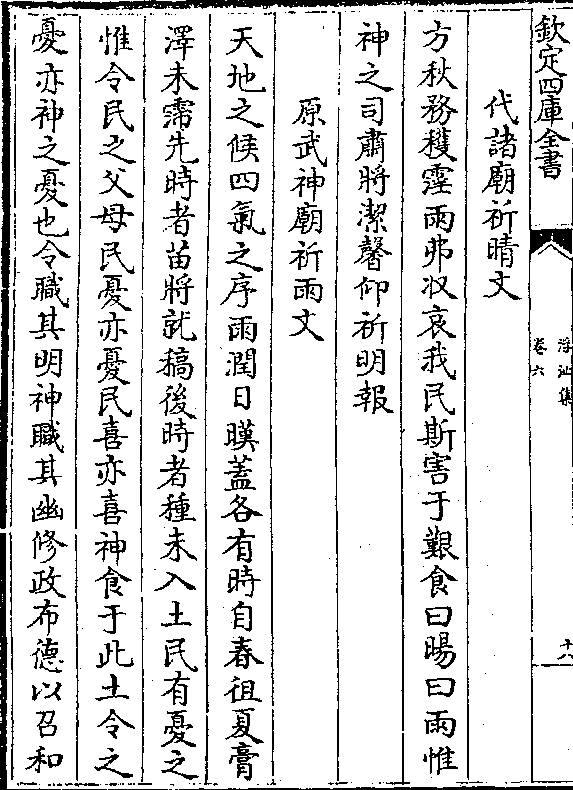 欽定四庫全書
浮沚集
卷六
十八
代諸廟祈晴文
方秋務穫霪雨弗収哀我民斯害于艱食曰暘曰雨惟
神之司肅將潔馨仰祈明報
原武神廟祈雨文
天地之候四氣之序雨潤日暵蓋各有時自春徂夏膏
澤未霈先時者苗將就稿後時者種未入土民有憂之
惟令民之父母民憂亦憂民喜亦喜神食于此土令之
憂亦神之憂也令職其明神職其幽修政布德以召和